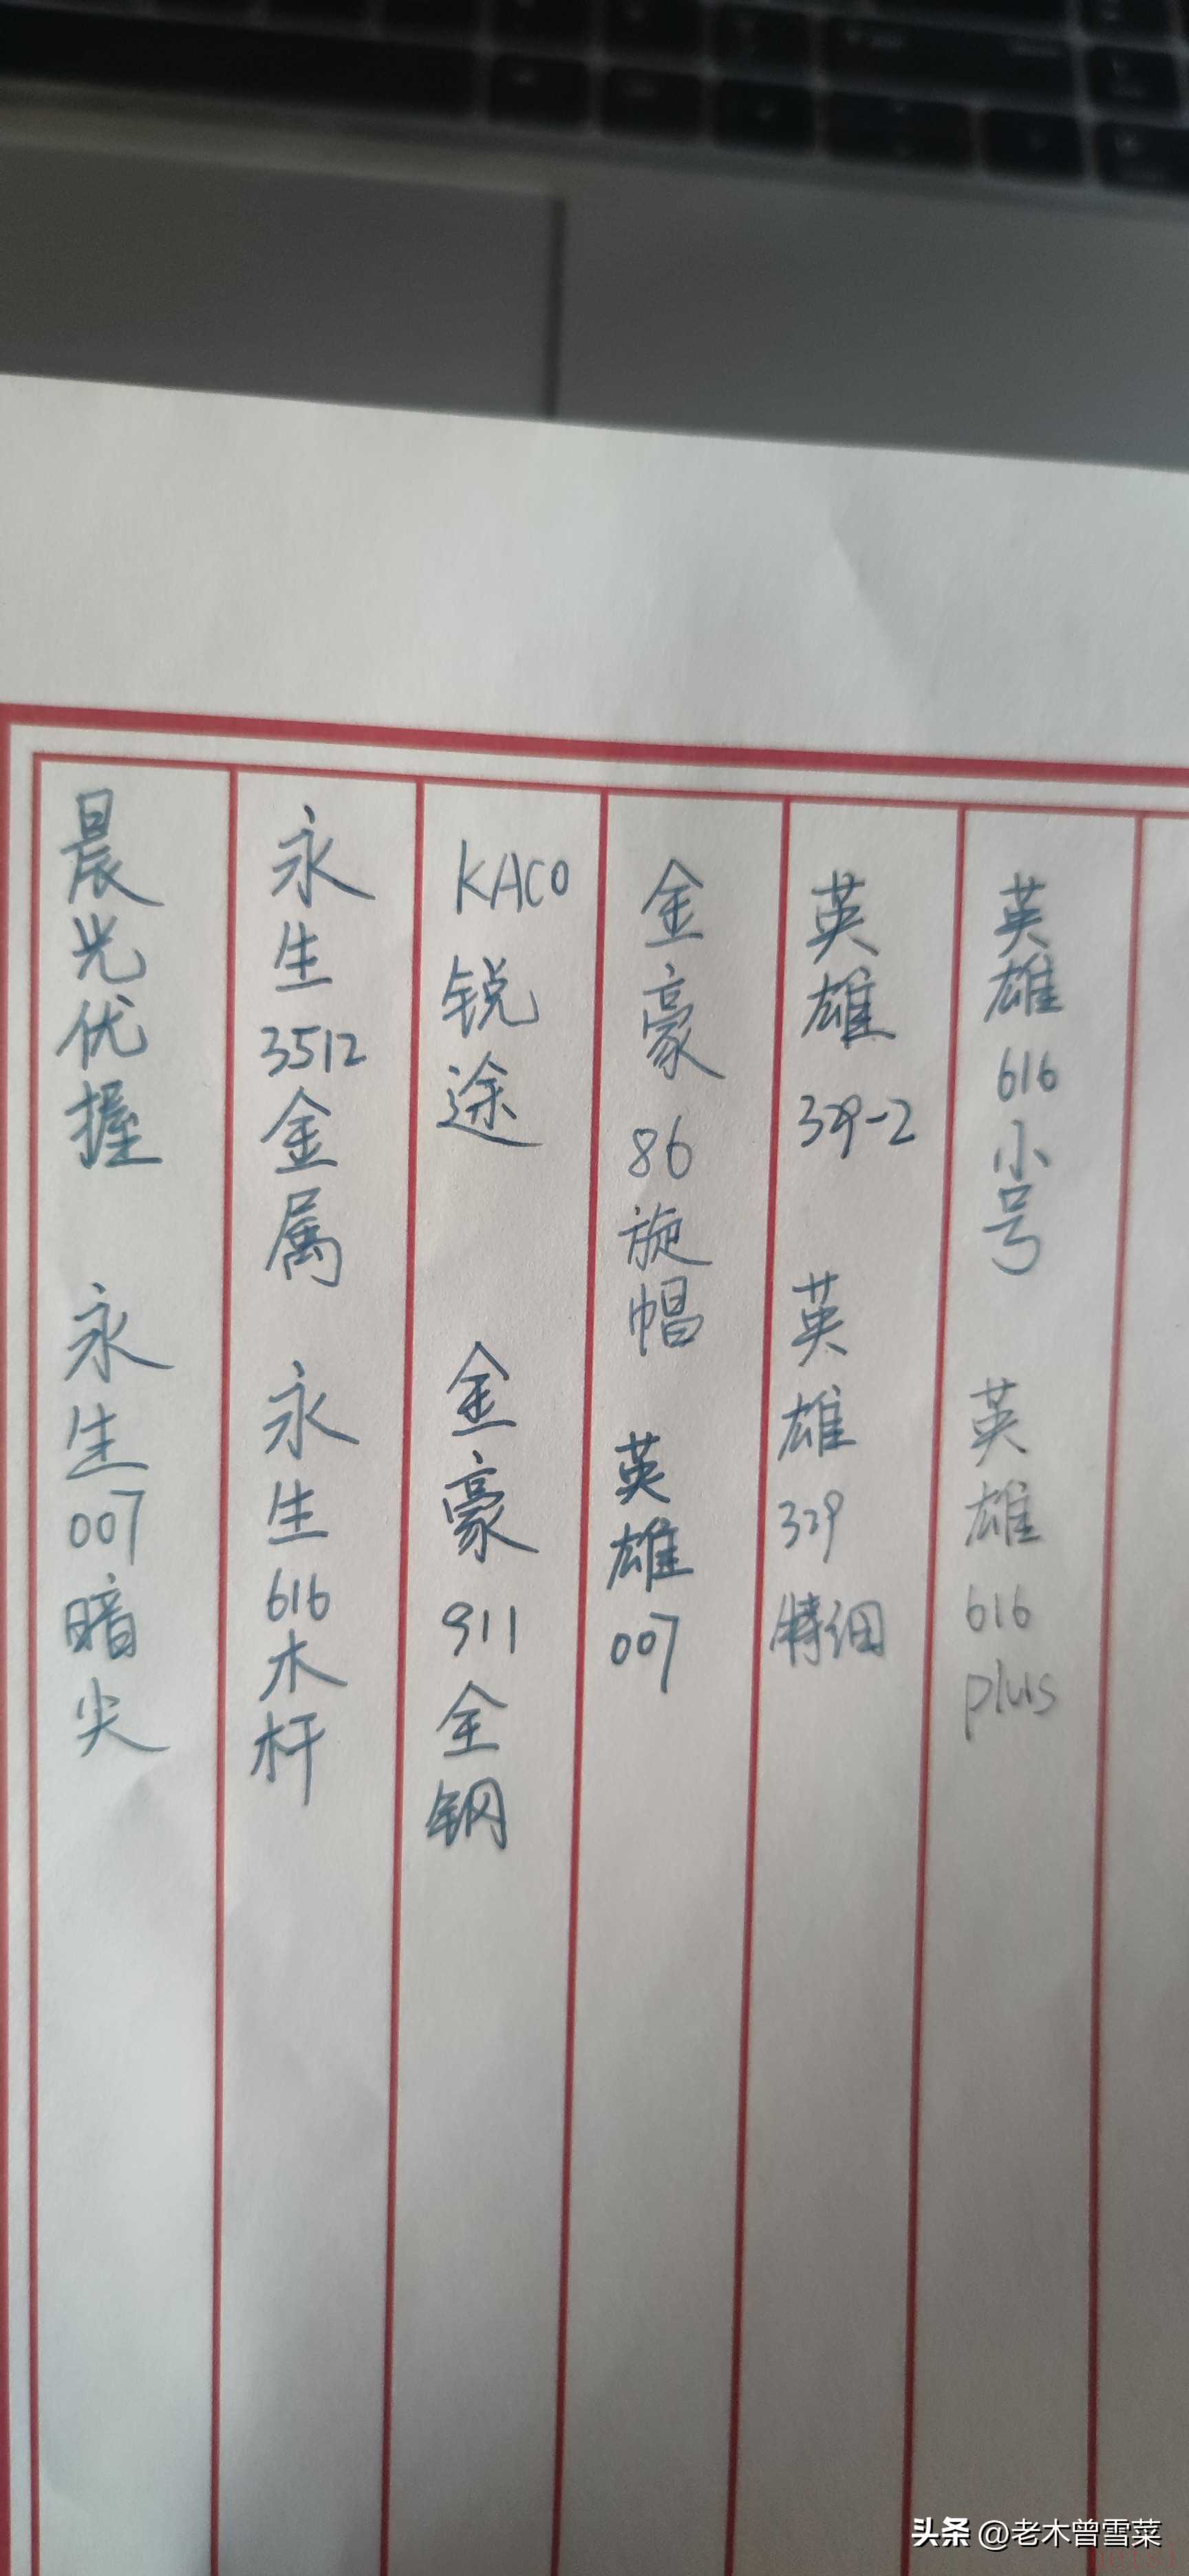 英雄616小号 英雄616plus
英雄329-2 英雄329特细
金豪86旋帽 英雄007
KACO锐途 金豪911全钢
永生3512金属 永生616木杆
晨光优握 永生007暗尖
头条 @老木曾雪菜